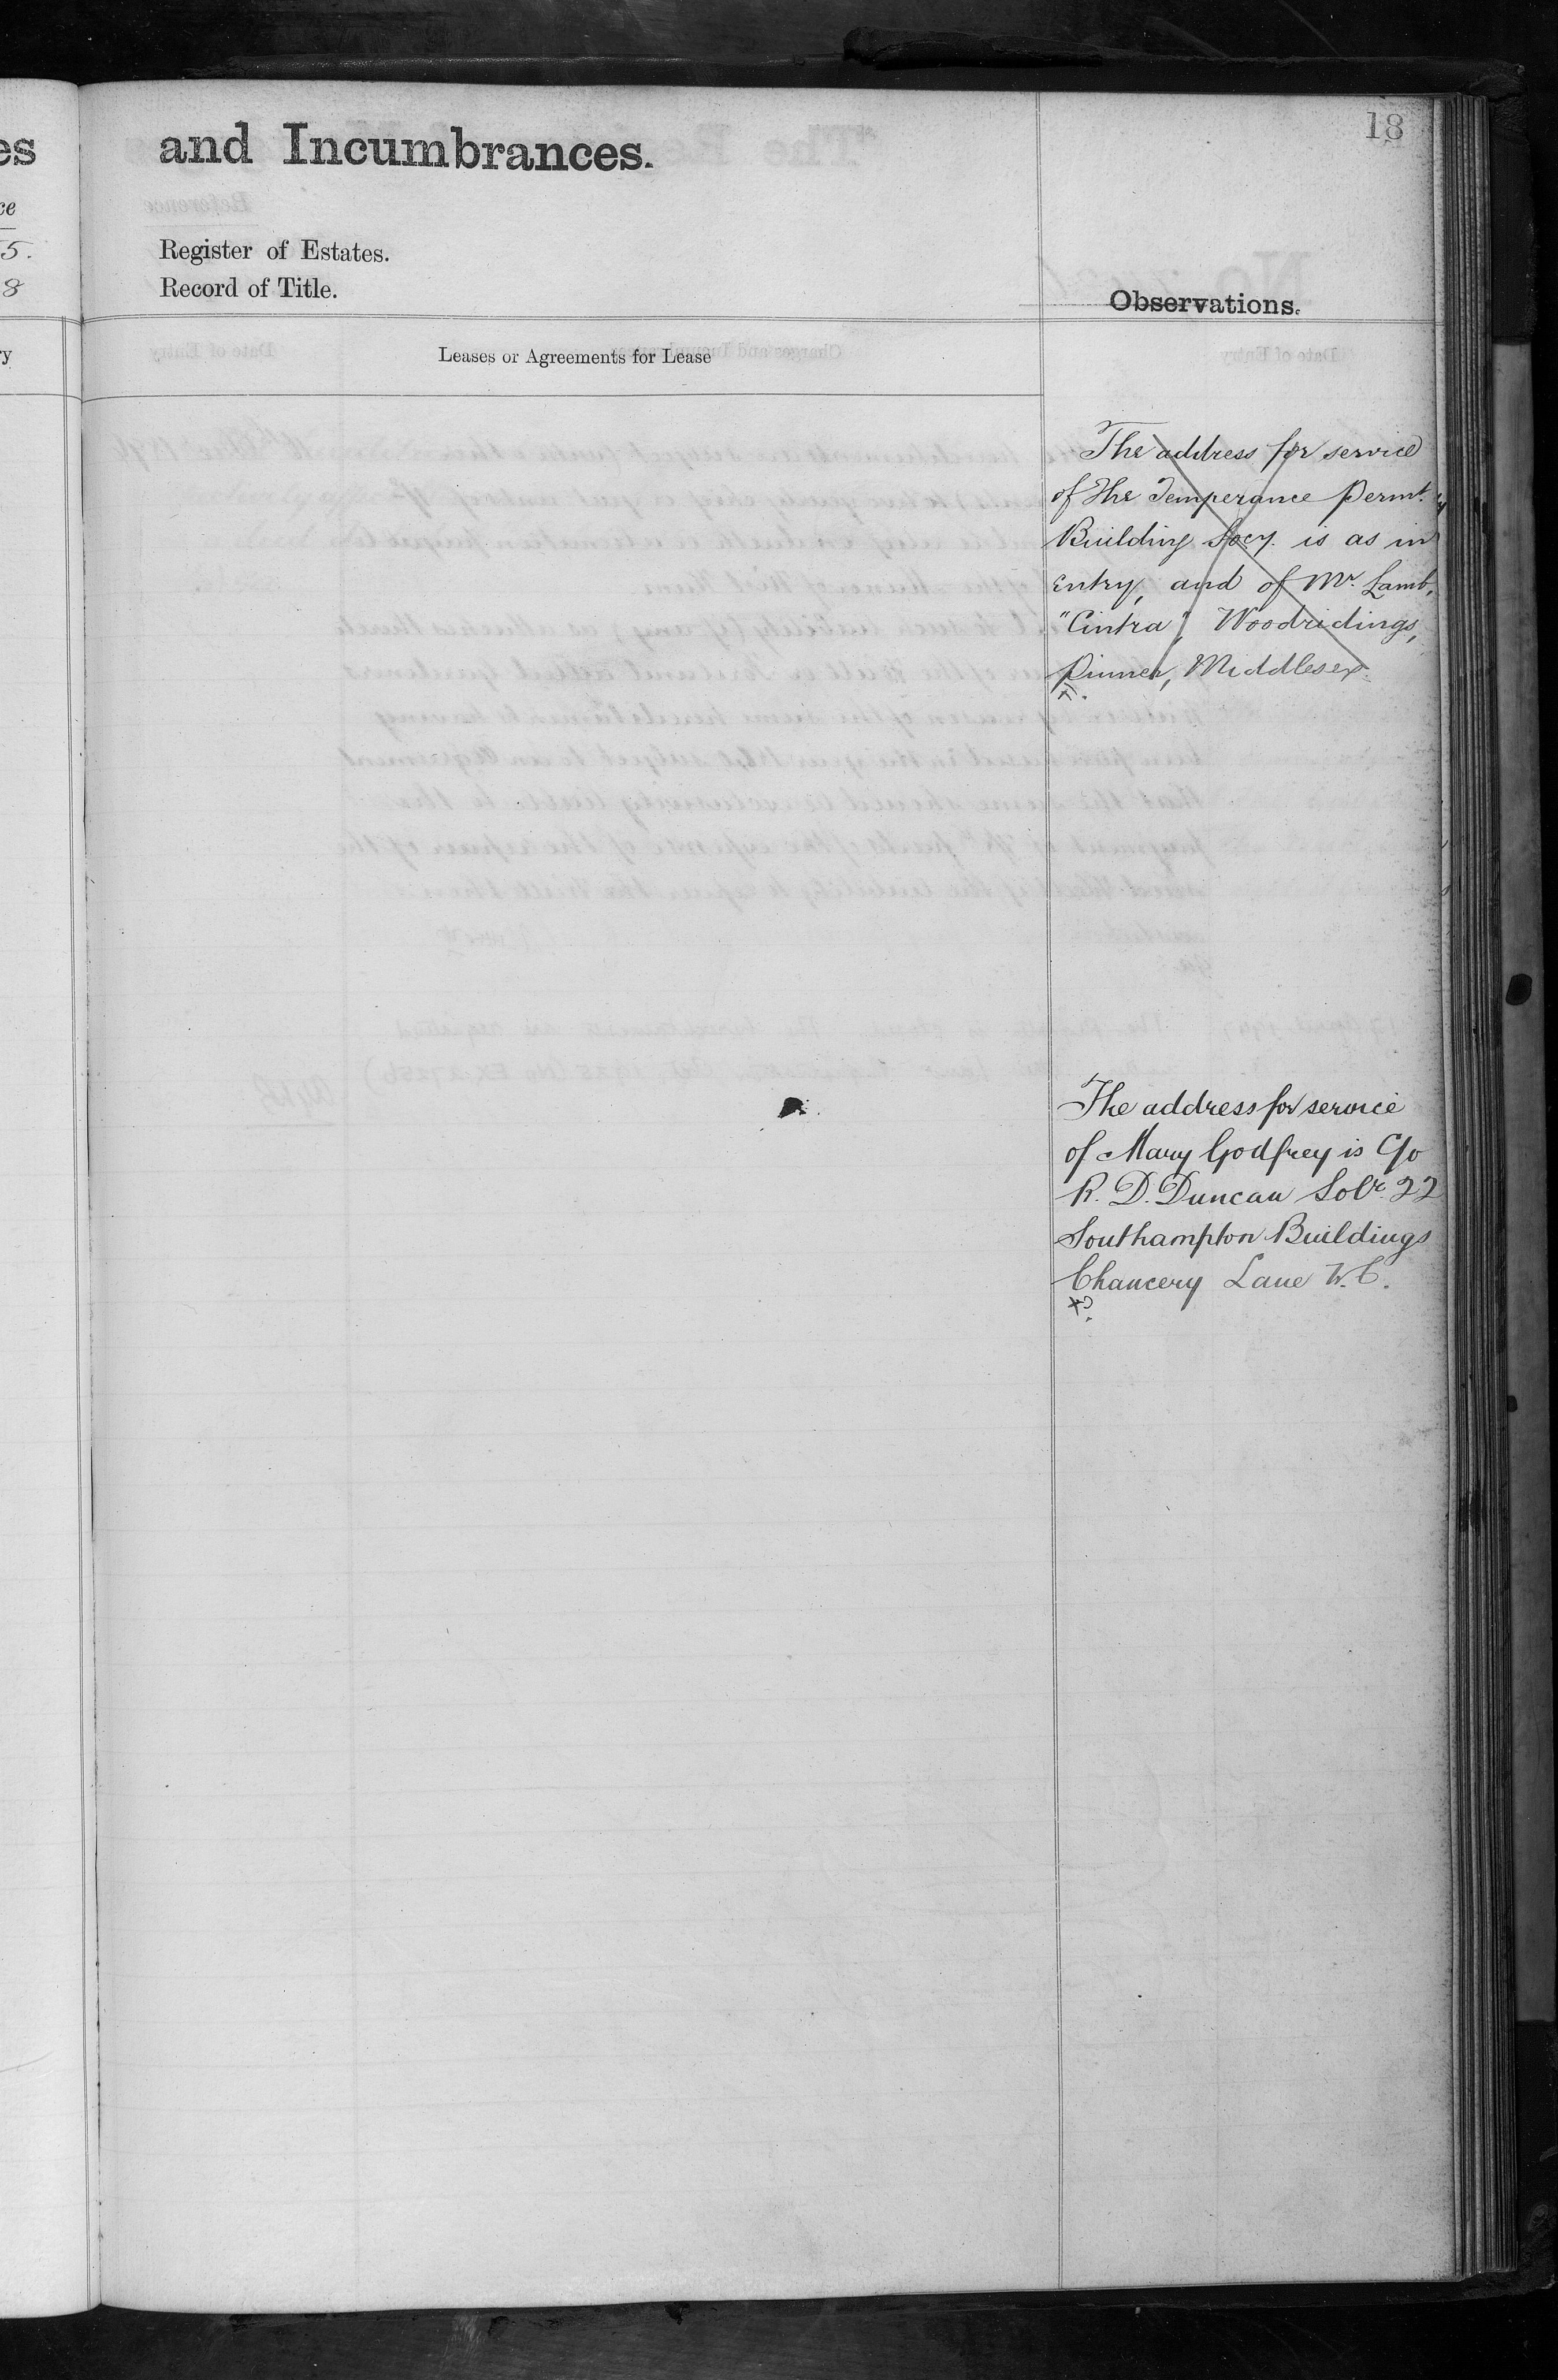 18
es and Incumbrances.
ce
5. Register of Estates.
8 Record of Title.
Observations.
y Leases or Agreements for Lease
The address for service
of The Temperance Permt.
Building Socy. is as in
Entry, and of Mr. Lamb,
"Cintra", Woodridings,
Pinner, Middlesex.
The address for service
of Mary Godfrey is C/o
R. D. Duncan Solr. 22
Southampton Buildings
Chancery Lane W.C.